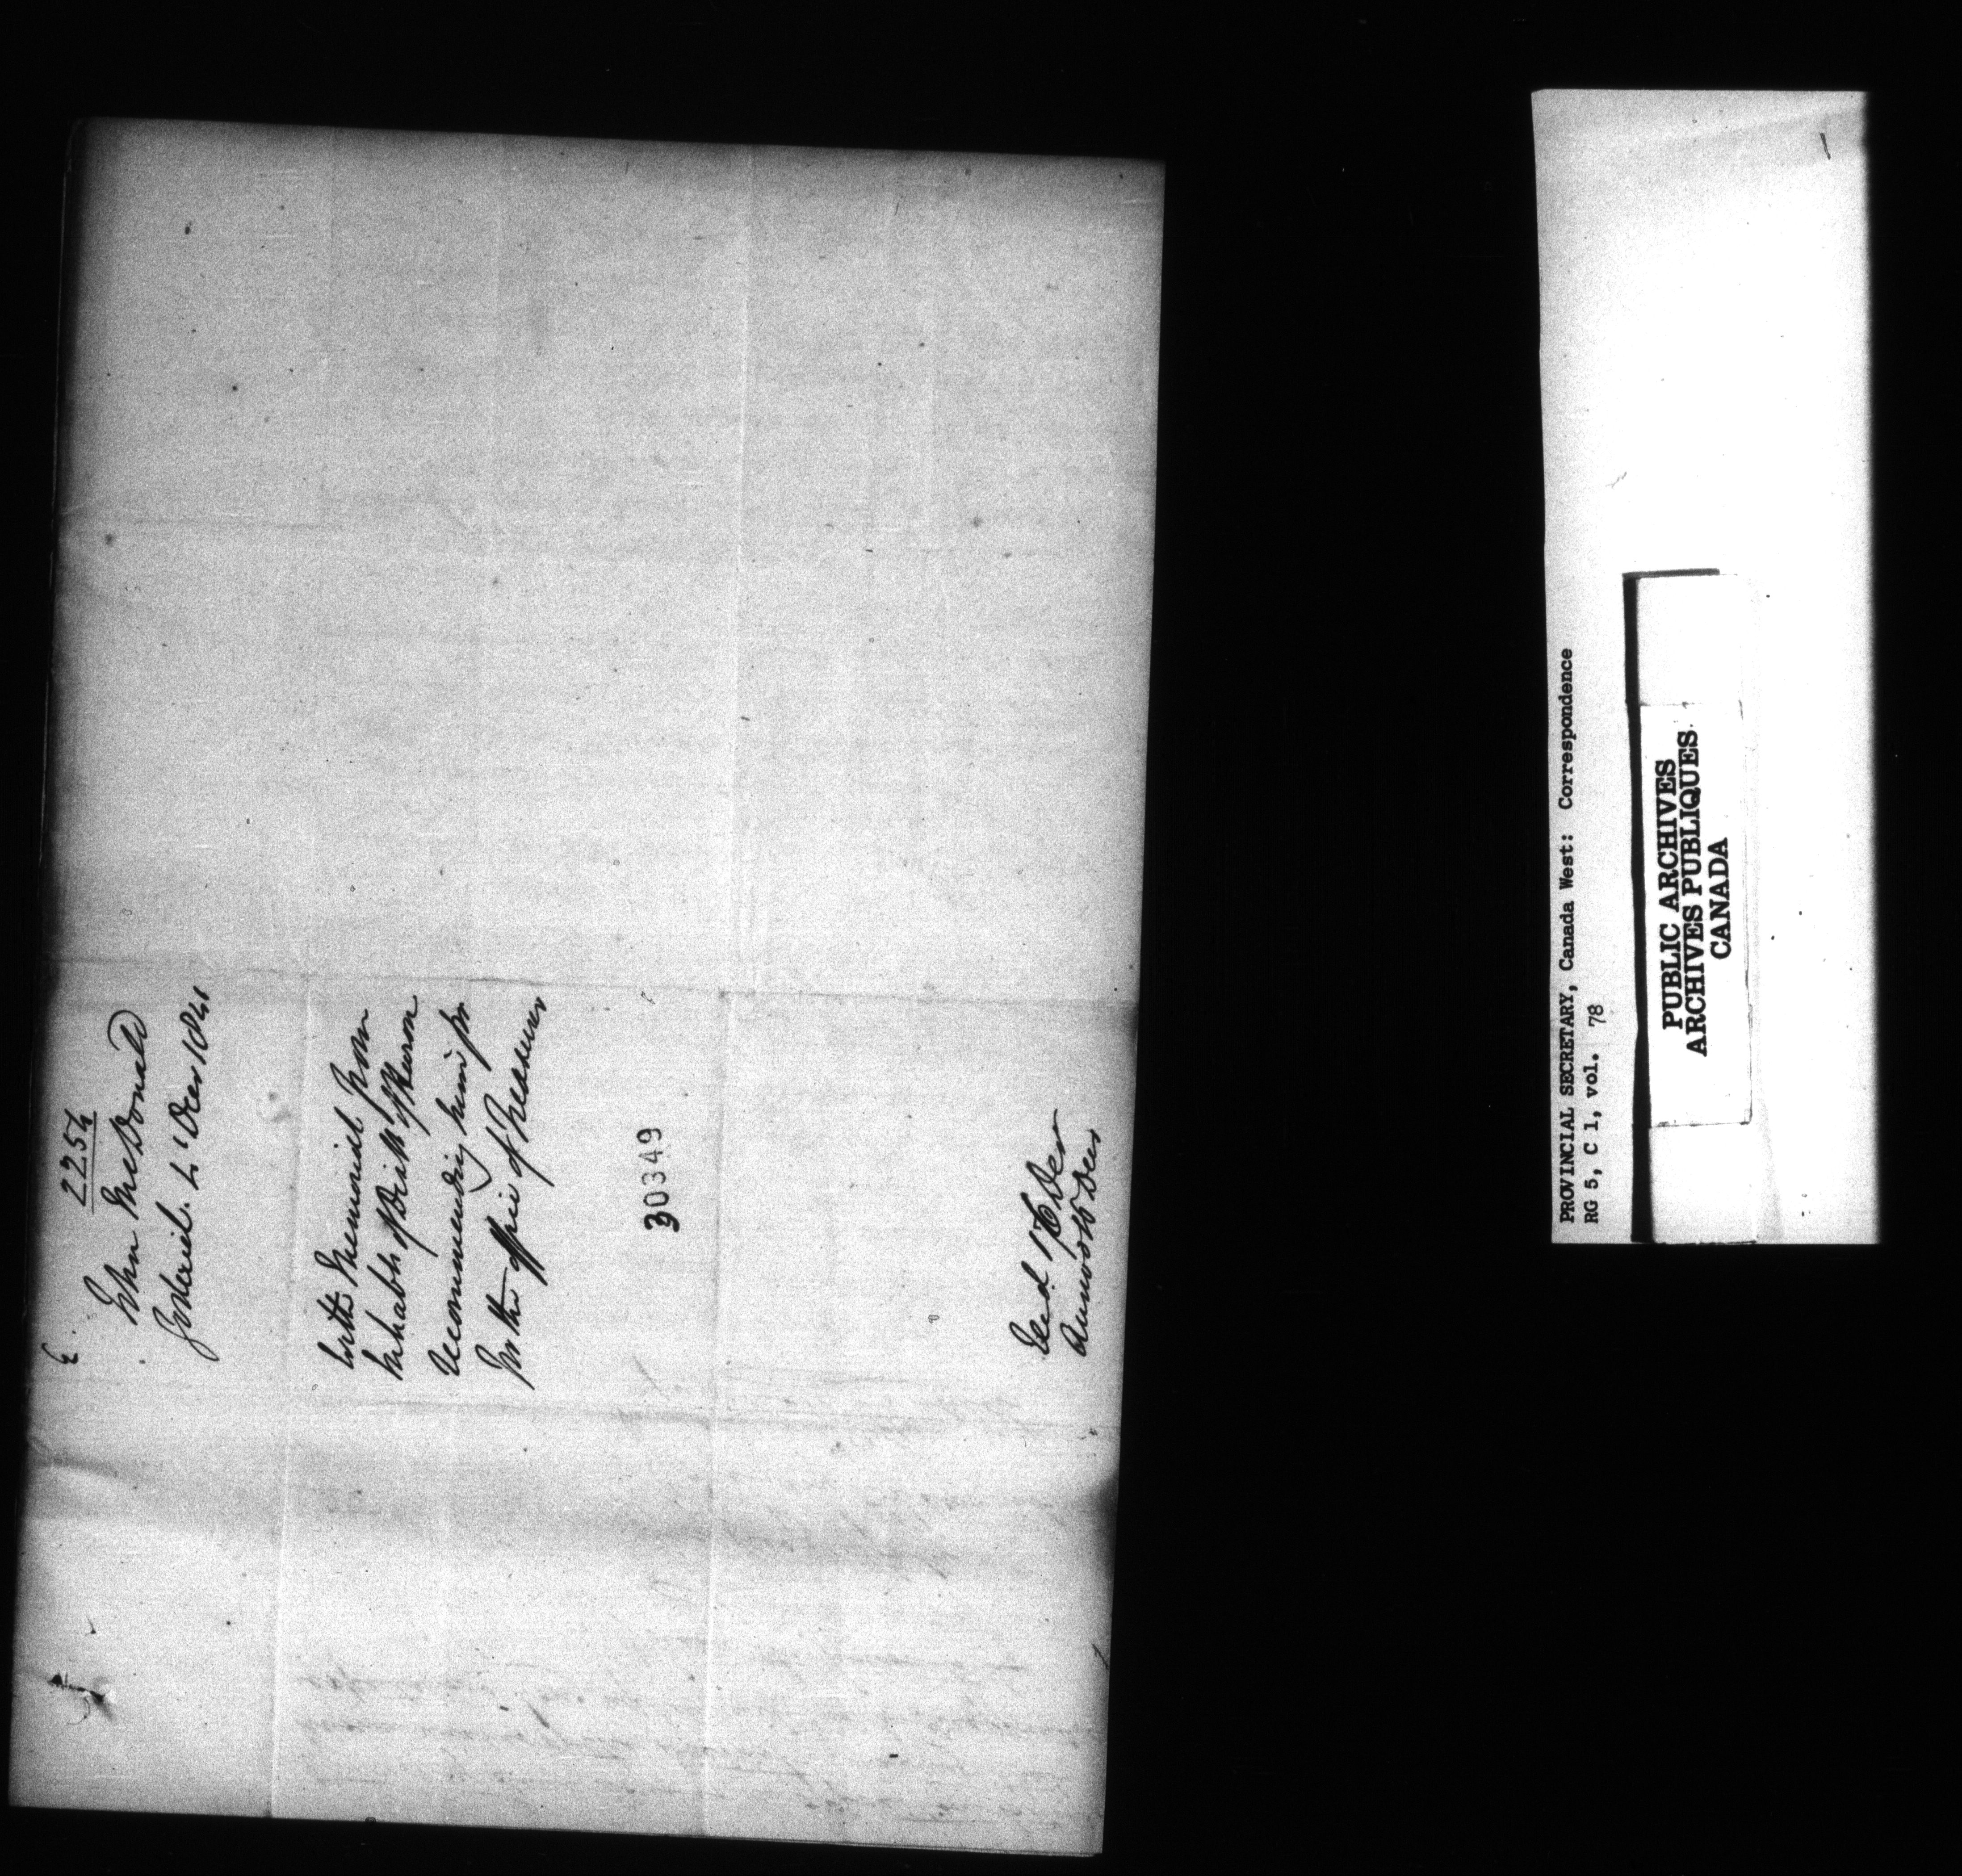 E.
2254
John McDonald
Goderich. 4' Decr 1841
With Memorial from
Inhabts of Distt of Huron
recommending him for
for the office of Treasurer
30349
Recd. 16 Decr
Answd 16 Decr
PROVINCIAL SECRETARY, Canada West: Correspondence
RG 5, C 1, vol. 78
PUBLIC ARCHIVES
ARCHIVES PUBLIQUES
CANADA